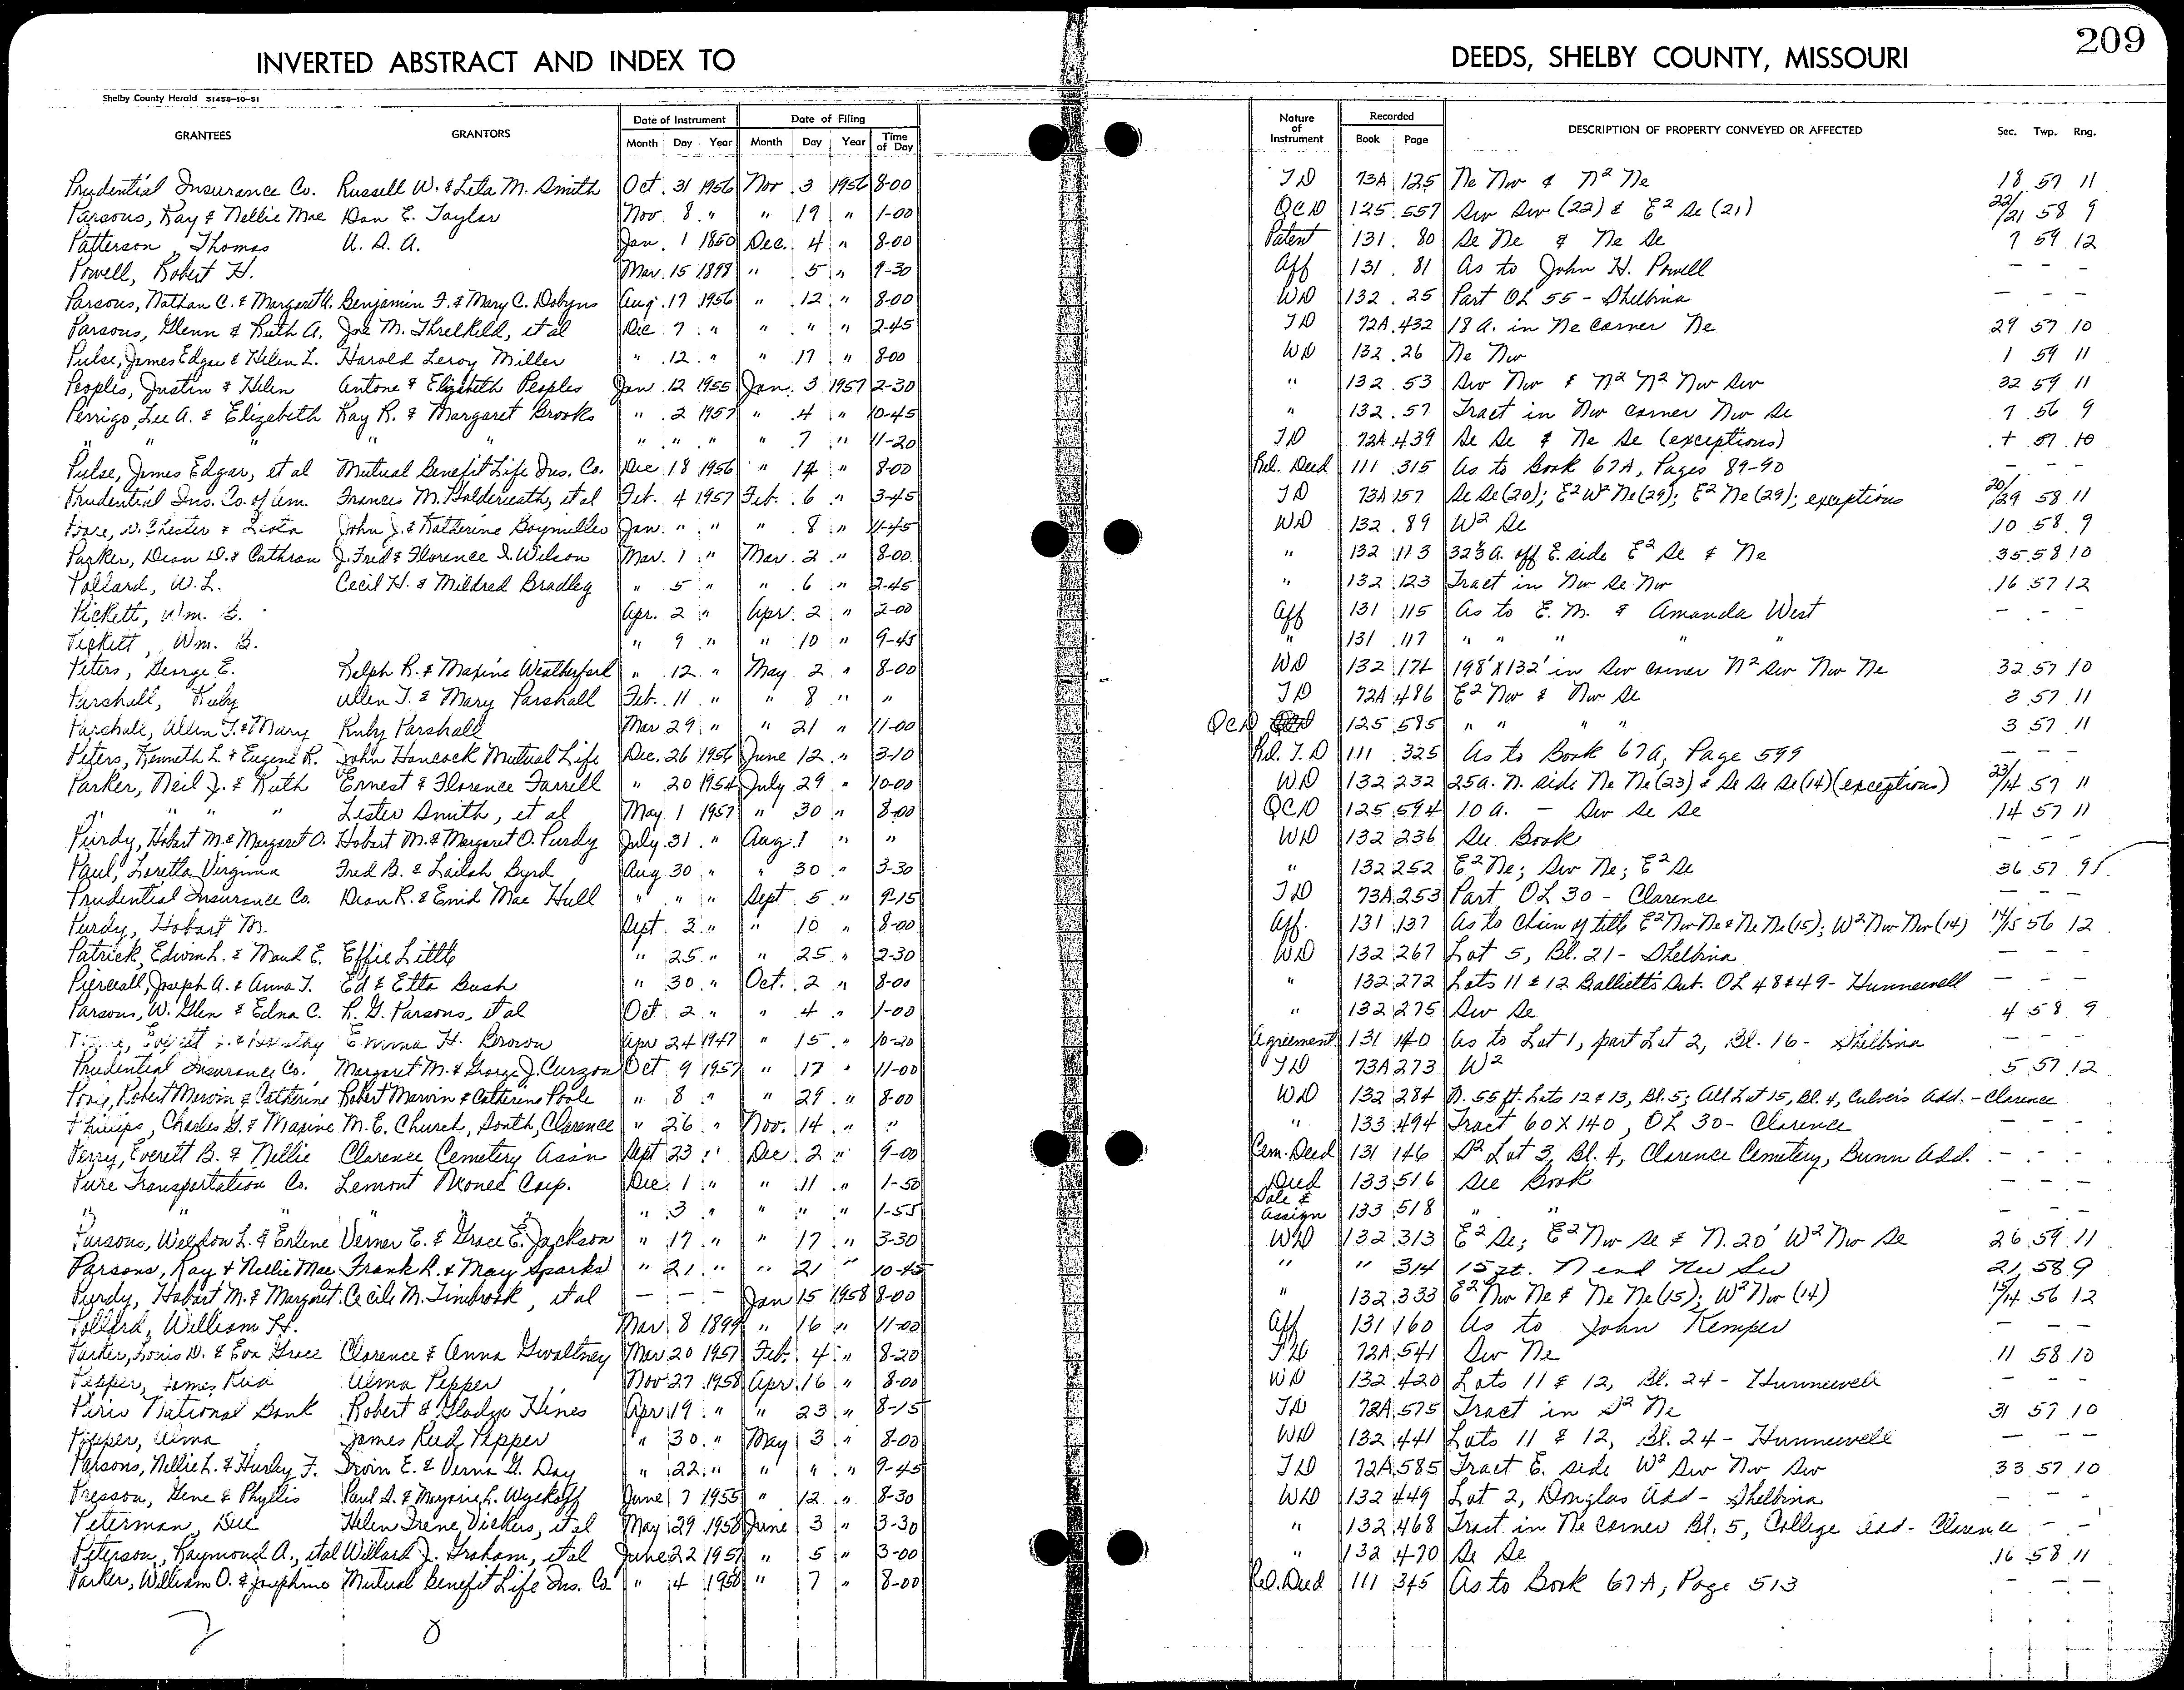 INVERTED ABSTRACT AND INDEX TO DEEDS, SHELBY COUNTY, MISSOURI 209
Shelby County Herald 51458-10-51
GRANTEES GRANTORS Date of Instrument Date of Filing Nature of Instrument Recorded DESCRIPTION OF PROPERTY CONVEYED OR AFFECTED Sec. Twp. Rng.
Month Day Year Month Day Year Time of Day Book Page
Prudential Insurance Co. Russell W. & Leta M. Smith Oct. 31 1956 Nov 3 1956 8-00 TD 73A 125 Ne Nw & N² Ne 18 57 11
Parsons, Ray & Nellie Mae Dan E. Taylor Nov. 8 " " 19 " 1-00 QCD 125 557 Sw Sw (22) & E² Se (21) 22/21 58 9
Patterson, Thomas U. S. A. Jan. 1 1850 Dec. 4 " 8-00 Patent 131 80 Se Ne & Ne Se 7 59 12
Powell, Robert H. Mar. 15 1899 " 5 " 9-30 Aff 131 81 As to John H. Powell — — -
Parsons, Nathan C. & Margaret A. Benjamin F. & Mary C. Dobyns Aug. 17 1956 " 12 " 8-00 WD 132 25 Part OL 55 - Shelbina — — -
Parsons, Glenn & Ruth A. Joe M. Threlkeld, et al Dec 7 " " " " 2-45 TD 72A 432 18 a. in Ne corner Ne 29 57 10
Pulse, James Edgar & Helen L. Harold Leroy Miller " 12 " " 17 " 8-00 WD 132 26 Ne Nw 1 59 11
Peoples, Justin & Helen Antone & Elizabeth Peoples Jan. 12 1955 Jan. 3 1957 2-30 " 132 53 Sw Nw & N² N² Nw Sw 32 59 11
Perrigo, Lee A. & Elizabeth Ray R. & Margaret Brooks " 2 1957 " 4 " 10-45 " 132 57 Tract in Nw corner Nw Se 7 56 9
" " " " " " " " 7 " 11-20 TD 72A 439 Se Se & Ne Se (exceptions) 57 10
Pulse, James Edgar, et al Mutual Benefit Life Ins. Co. Dec 18 1956 " 14 " 8-00 Rel. Deed 111 315 As to Book 67A, Pages 89-90 - - -
Prudential Ins. Co. of Am. Frances M. et al Feb. 4 1957 Feb. 6 " 3-45 TD 73A 157 Se Se (20); E² W² Ne (29); E² Ne (29); exceptions 20/29 58 11
Chester & John J. & Katherine Jan. " " " 8 " 11-45 WD 132 89 W² Se 10 58 9
Parker, Dean D. & Cathran J. Fred & Florence I. Wilson Mar. 1 " Mar. 2 " 8-00 " 132 113 a. off E. side E² Se & Ne 35 58 10
Pollard, W. L. Cecil H. & Mildred Bradley " 5 " " 6 " 2-45 " 132 123 Tract in Nw Se Nw 16 57 12
Pickett, Wm. B. Apr. 2 " Apr. 2 " 2-00 Aff 131 115 As to E. M. & Amanda West - - -
Pickett, Wm. B. " 9 " " 10 " 9-45 " 131 117 " " " " "
Peters, George E. Ralph R. & Maxine Weatherford " 12 " May 2 " 8-00 WD 132 174 198' X 132' in Sw corner N² Sw Nw Ne 32 57 10
Parshall, Ruby Allen T. & Mary Parshall Feb. 11 " " 8 " " TD 72A 486 E² Nw & Nw Se 3 57 11
Parshall, Allen T. & Mary Ruby Parshall Mar 29 " " 21 " 11-00 QCD 125 585 " " " " 3 57 11
Peters, Kenneth L. & Eugene R. John Hancock Mutual Life Dec. 26 1956 June 12 " 3-10 Rel. T. D 111 325 As to Book 67A, Page 599 — — —
Parker, Neil J. & Ruth Ernest & Florence Farrell " 20 1954 July 29 " 10-00 WD 132 232 25a. N. side Ne Ne (23) & Se Se Se (14) (exceptions) 23/14 57 11
" " " Lester Smith, et al May 1 1957 " 30 " 8-00 QCD 125 594 10 a. — Sw Se Se 14 57 11
Purdy, Hobart M. & Margaret O. Hobart M. & Margaret O. Purdy July 31 " Aug. 1 " " WD 132 236 See Book — — —
Paul, Loretta Virginia Fred B. & Lailah Byrd Aug 30 " " 30 " 3-30 " 132 252 E² Ne; Sw Ne; E² Se 36 57 9
Prudential Insurance Co. Dean R. & Enid Mae Hull " " " Sept 5 " 9-15 TD 73A 253 Part OL 30 - Clarence — — —
Purdy, Hobart M. Sept. 3 " " 10 " 8-00 Aff. 131 137 As to chain of title E² Nw Ne & Ne Ne (15); W² Nw Nw (14) 14/15 56 12
Patrick, Edwin L. & Maud E. Effie Little " 25 " " 25 " 2-30 WD 132 267 Lot 5, Bl. 21 - Shelbina — — —
Piercall, Joseph A. & Anna T. Ed & Etta Bush " 30 " Oct. 2 " 8-00 " 132 272 Lots 11 & 12 Balliett's Sub. OL 48 & 49 - Hunnewell — — —
Parsons, W. Glen & Edna C. R. G. Parsons, et al Oct. 2 " " 4 " 1-00 " 132 275 Sw Se 4 58 9
Emma H. Brown Apr 24 1947 " 15 " 10-20 Agreement 131 140 As to Lot 1, part Lot 2, Bl. 16 - Shelbina — — —
Prudential Insurance Co. Margaret M. & George J. Curzon Oct 9 1957 " 17 " 11-00 TD 73A 273 W² 5 57 12
Robert Mervin & Catherine Robert Marvin & Catherine Poole " 8 " " 29 " 8-00 WD 132 284 N. 55 ft. Lots 12 & 13, Bl. 5; All Lot 15, Bl. 4, Culver's Add. - Clarence
Phillips, Charles G. & Maxine M. E. Church, South, Clarence " 26 " Nov. 14 " " " 133 494 Tract 60 X 140, OL 30 - Clarence — — —
Perry, Everett B. & Nellie Clarence Cemetery Ass'n Sept 23 " Dec 2 " 9-00 Cem. Deed 131 146 S² Lot 3, Bl. 4, Clarence Cemetery, Bunn Add. - - -
Pure Transportation Co. Lemont Corp. Dec. 1 " " 11 " 1-50 Deed 133 516 See Book — — —
" " " " " 3 " " " " 1-55 Sale & Assign 133 518 " " — — —
Parsons, Weldon L. & Erlene Verner E. & Grace E. Jackson " 17 " " 17 " 3-30 WD 132 313 E² Se; E² Nw Se & N. 20' W² Nw Se 26 59 11
Parsons, Ray & Nellie Mae Frank R. & May Sparks " 21 " " 21 " 10-45 " " 314 N end 21 58 9
Purdy, Hobart M. & Margaret Cecile M. Timbrook, et al — — — Jan 15 1958 8-00 " 132 333 E² Nw Ne & Ne Ne (15); W² Nw (14) 15/14 56 12
Pollard, William H. Mar. 8 1899 " 16 " 11-00 Aff 131 160 As to John Kemper — — —
Parker, Louis D. & Eva Grace Clarence & Anna Gwaltney Mar 20 1957 Feb. 4 " 8-20 TD 72A 541 Sw Ne 11 58 10
Pepper, James Reed Alma Pepper Nov 27 1958 Apr. 16 " 8-00 WD 132 420 Lots 11 & 12, Bl. 24 - Hunnewell - - -
Paris National Bank Robert & Gladys Hines Apr. 19 " " 23 " 8-15 TD 72A 575 Tract in S² Ne 31 57 10
Pepper, Alma James Reed Pepper " 30 " May 3 " 8-00 WD 132 441 Lots 11 & 12, Bl. 24 - Hunnewell — — —
Parsons, Nellie L. & Hurley F. Irvin E. & Verna G. Day " 22 " " " " 9-45 TD 72A 585 Tract E. side W² Sw Nw Sw 33 57 10
Presson, Gene & Phyllis Paul D. & Marjorie L. Wyckoff June 7 1955 " 12 " 8-30 WD 132 449 Lot 2, Douglas Add - Shelbina — — —
Peterman, Dee Helen Irene Vickers, et al May 29 1958 June 3 " 3-30 " 132 468 Tract in Ne corner Bl. 5, College Add - Clarence - -
Peterson, Raymond A., et al Willard J. Graham, et al June 22 1957 " 5 " 3-00 " 132 470 Se Se 16 58 11
Parker, William O. & Josephine Mutual Benefit Life Ins. Co. " 4 1958 " 7 " 8-00 Rel. Deed 111 345 As to Book 67A, Page 513 — — —
7 8